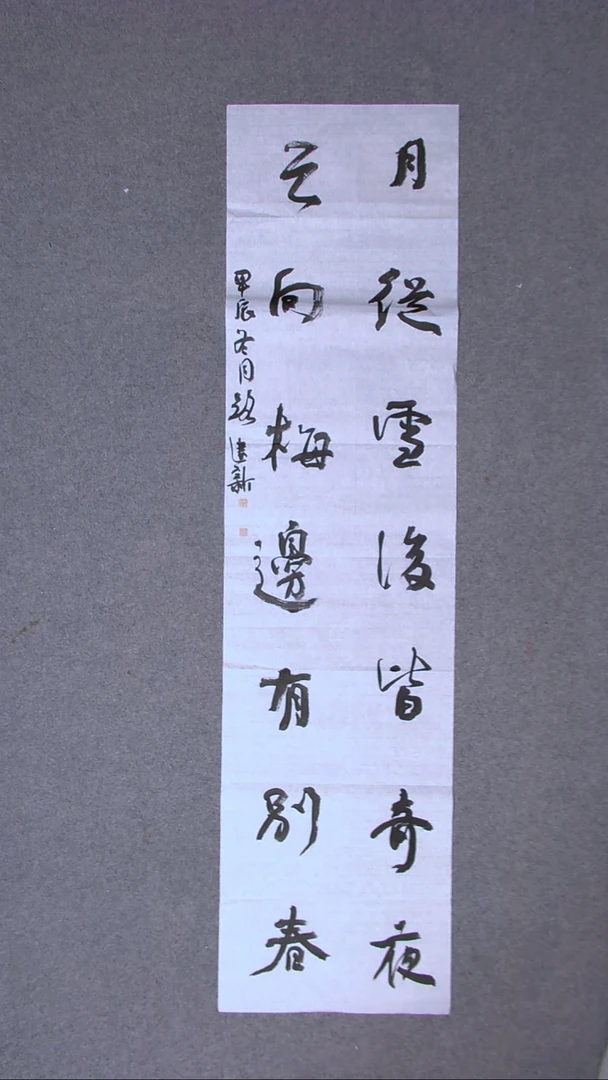 月從雪後皆奇夜
天向梅邊有別春
甲辰冬月建新